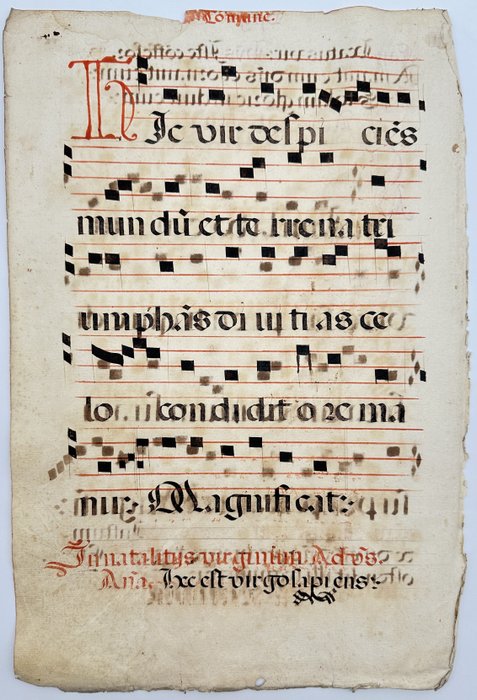 Comune.
HIc vir despi ciẽs
mun dũ et te rrena tri
umphãs di ui ti as ce
lo condidit ore mã
nu: Magnificat:
In natalitijs virginum Ad vs.
Aña. Hec est virgo sapiens: